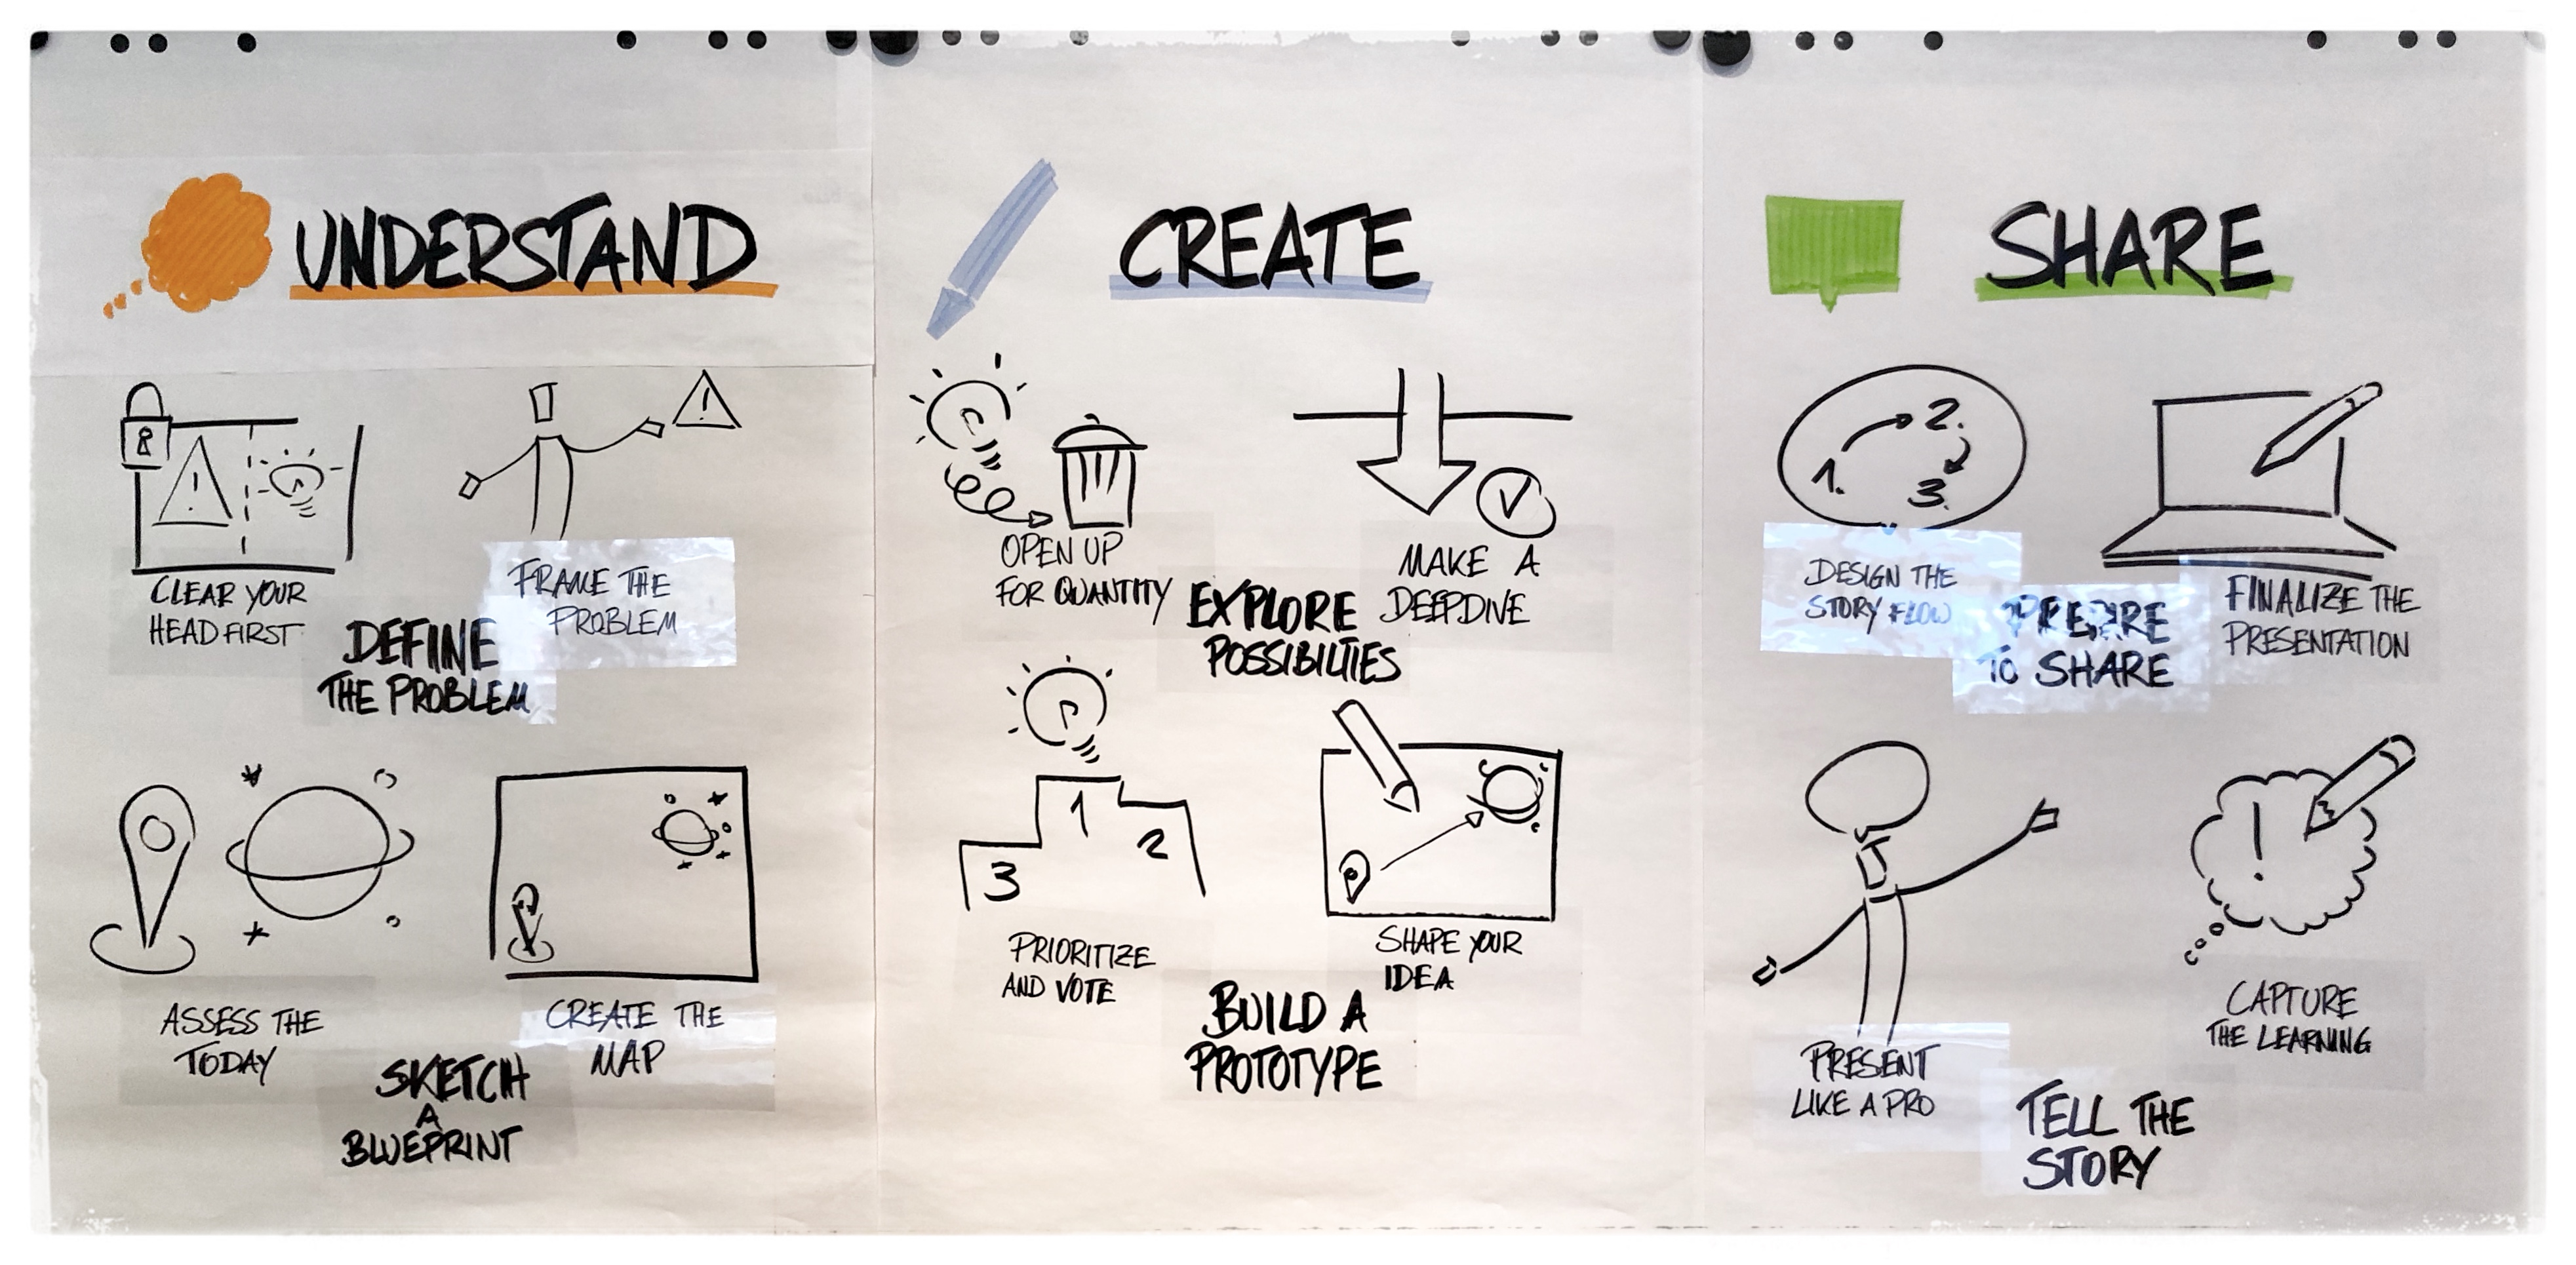 UNDERSTAND
CLEAR YOUR
HEAD FIRST
FRAME THE
PROBLEM
DEFINE
THE PROBLEM
ASSESS THE
TODAY
CREATE THE
MAP
SKETCH
A
BLUEPRINT
CREATE
OPEN UP
FOR QUANTITY
MAKE A
DEEPDIVE
EXPLORE
POSSIBILTIES
1
2
3
PRIORITIZE
AND VOTE
SHAPE YOUR
IDEA
BUILD A
PROTOTYPE
SHARE
1.
2.
3.
DESIGN THE
STORY FLOW
FINALIZE THE
PRESENTATION
PREPARE
TO SHARE
PRESENT
LIKE A PRO
CAPTURE
THE LEARNING
TELL THE
STORY